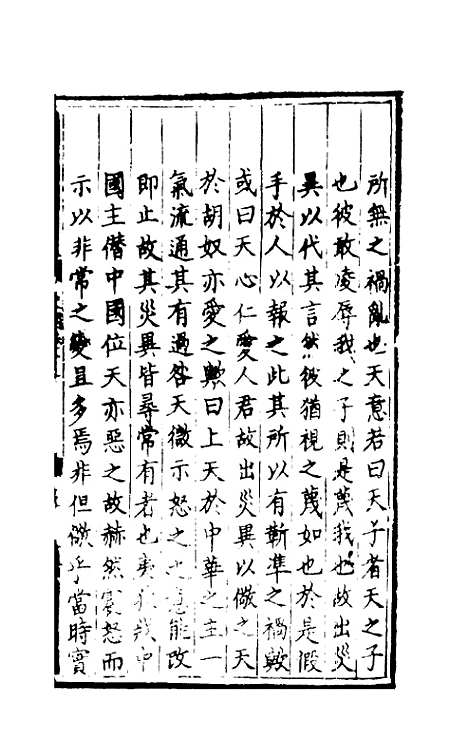 所無之禍亂也天意若曰天子者天之子
也彼敢凌辱我之子則是蔑我也故出災
異以代其言然彼猶視之蔑如也於是假
手於人以報之此其所以有靳準之禍歟
或曰天心仁愛人君故出災異以儆之天
於胡奴亦愛之歟曰上天於中華之主一
氣流通其有過咎天微示怒之之意能改
即止故其災異皆尋常有者也夷狄戕中
國主僭中國位天亦惡之故赫然震怒而
示以非常之變且多焉非但徵乎當時實